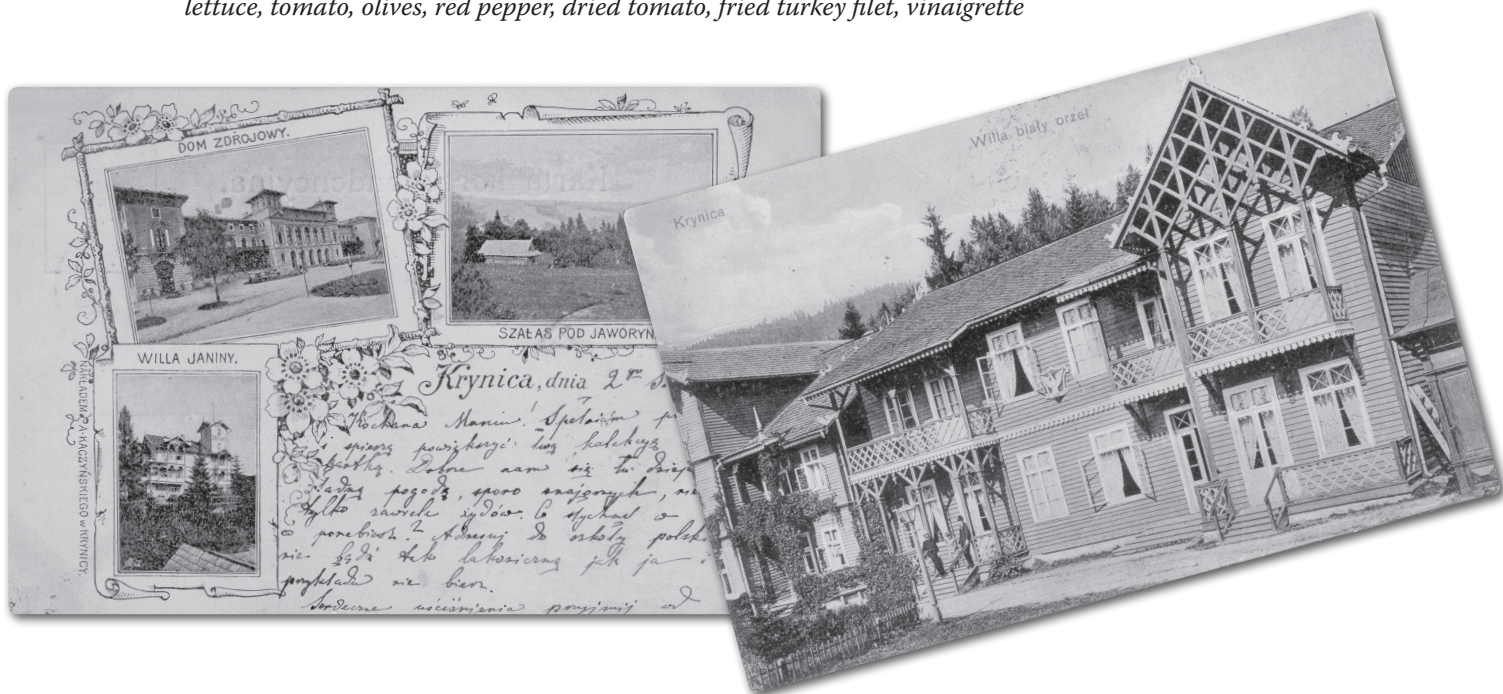 lettuce, tomato, olives, red pepper, dried tomato, fried turkey filet, vinaigrette
DOM ZDROJOWY.
SZAŁAS POD JAWORYN
WILLA JANINY.
NAKŁADEM A. KACZYŃSKIEGO w KRYNICY.
Krynica, dnia 2
Kochana Maniu! Spełniam
i spieszę powiększyć twą kolekcyę
kartką. Dobrze nam się tu
Ładna pogoda, sporo znajomych,
tylko zawiele żydów. Co słychać w
? Adresuj do szkoły polsk
nie bądź tak lakoniczną jak ja
przykładu nie bierz.
Serdeczne uściśnienia przyjmij od
Krynica
Willa biały orzeł